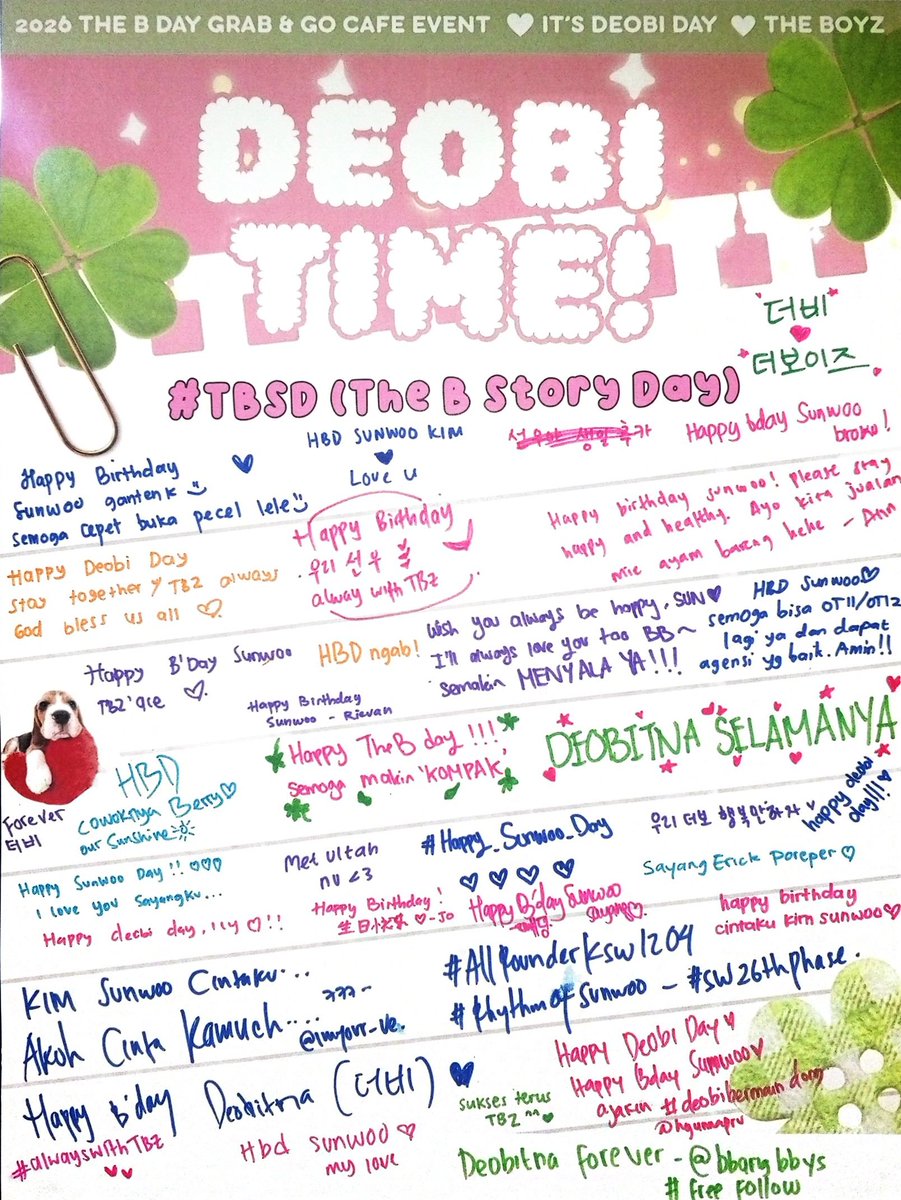 2026 THE B DAY GRAB & GO CAFE EVENT ♥ IT'S DEOBI DAY ♥ THE BOYZ
DEOBI
TIME!
더비
♥
더보이즈
#TBSD (The B Story Day)
Happy Birthday
Sunwoo gantenk
semoga cepet buka pecel lele
HBD SUNWOO KIM
♥
Love u
Happy bday Sunwoo
broku!
Happy Deobi Day
stay together TBZ always
God bless us all ♡
Happy Birthday
우리 선우
alway with TBZ
Happy birthday sunwoo! please stay
happy and healthy. Ayo kita jualan
mie ayam bareng hehe - Ann
Happy B'Day Sunwoo
TBZ'ace ♡
HBD ngab!
Happy Birthday
Sunwoo - Rievan
Wish you always be happy, SUN♥
I'll always love you too BB~
semakin MENYALA YA!!!
HBD Sunwoo♡
semoga bisa OT11/OT12
lagi ya dan dapat
agensi yg baik. Amin!!
Forever
더비
HBD
cowoknya Berry♡
our sunshine
Happy TheB day !!!
semoga makin 'KOMPAK'
DEOBITNA SELAMANYA
Happy Sunwoo Day!! ♡♡♡
I love you Sayangku...
Happy deobi day, ily ♡!!
Met ultah
nu <3
Happy Birthday!
生日快乐 ♡-Jo
#Happy_Sunwoo_Day
♡ ♡ ♡ ♡
Happy B'day Sunwoo
sayang♡
우리 더비 행복만하자
happy deobi
day!!!
Sayang Erick poreper♡
happy birthday
cintaku kim sunwoo♡
KIM Sunwoo Cintaku...
Akoh Cinta Kamuch....
#AllRounderKsw1204
#RhythmofSunwoo - #SW26thPhase.
Happy B'day Deobitna (더비) ♥
#alwaysWithTBZ
Hbd sunwoo ♡
my love
sukses terus
TBZ ^^ ♥
Happy Deobi Day♥
Happy Bday Sunwoo♥
ajarin #deobibermain dong
Deobitna forever - @bbangbbys
# Free Follow